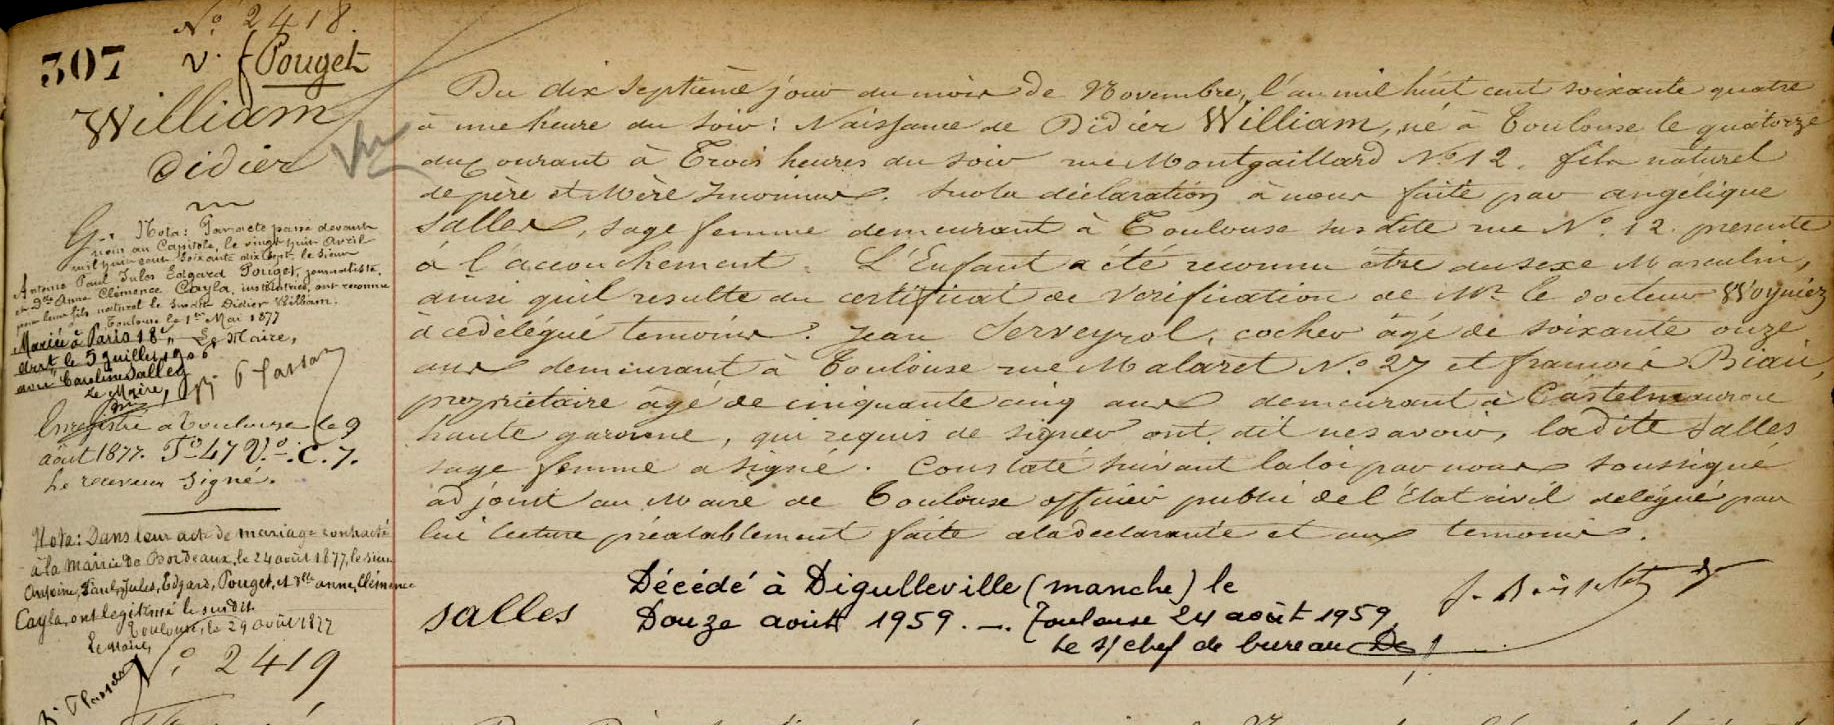 N° 2418.
307
V. Pouget
William
Didier
Vu
Nota: Par acte passé devant
nous au Capitole, le vingt huit Avril
mil huit cent soixante dix sept, le sieur
Antoine Paul Jules Edgard Pouget, journaliste,
et Dlle Anne Clémence Cayla, institutrice, ont reconnu
pour leur fils naturel le susdit Didier William.
Toulouse le 1er Mai 1877
Le Maire,
Marié à Paris 18e
arrt le 5 juillet 1906
avec Caroline Salles
Le Maire,
Enregistré à Toulouse le 9
août 1877. F° 47 V°. C. 7.
Le receveur signé.
Nota: Dans leur acte de mariage contracté
à la mairie de Bordeaux, le 24 août 1877, le sieur
Antoine, Paul, Jules, Edgard, Pouget, et Dlle anne, Clémence
Cayla, ont légitimé le susdit.
Toulouse, le 29 août 1877
Le Maire,
N° 2419
Du dix septième jour du mois de Novembre, l'an mil huit cent soixante quatre
à une heure du soir: Naissance de Didier William, né à Toulouse le quatorze
du courant à Trois heures du soir rue Montgaillard N° 12. fils naturel
de père et Mère Inconnus. Sur la déclaration à nous faite par angélique
Salles, sage femme demeurant à Toulouse susdite rue N° 12. presente
à l'accouchement. L'Enfant a été reconnu être du sexe Masculin,
ainsi qu'il resulte du certificat de verification de Mr le docteur
à ce délégué temoins. Jean Serveyrol, cocher âgé de soixante onze
ans demeurant à Toulouse rue Malaret N° 27 et francois Biau,
propriétaire âgé de cinquante cinq ans demeurant à Castelmaurou
haute garonne, qui requis de signer ont dit ne savoir, ladite Salles
sage femme a signé. Constaté suivant la loi par nous soussigné
adjoint au Maire de Toulouse officier public de l'Etat civil delégué par
lui lecture préalablement faite à la declarante et aux temoins.
Décédé à Digulleville (manche) le
salles Douze août 1959. _. Toulouse 24 août 1959
Le s/chef de bureau